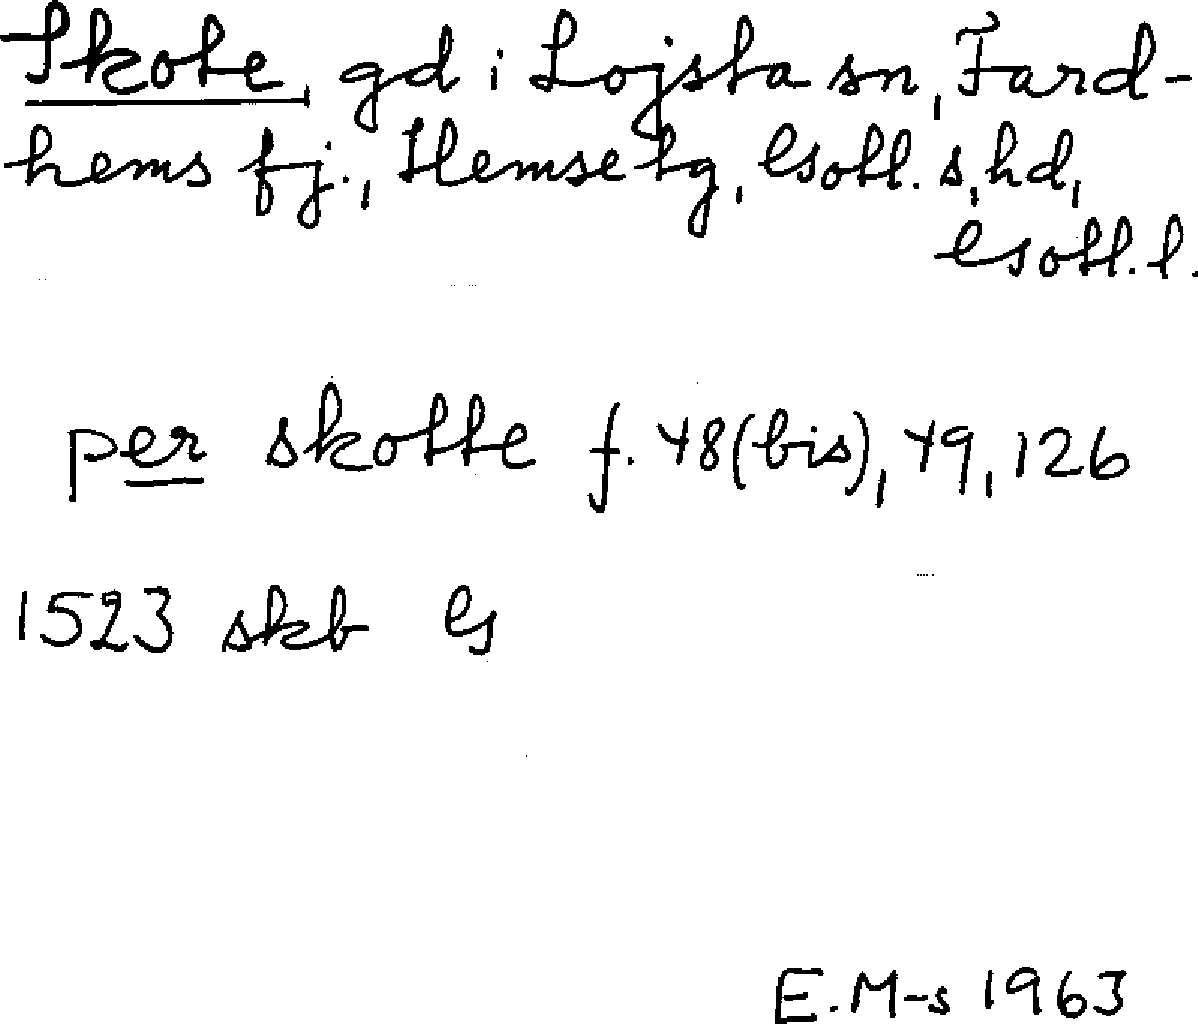 Skote, gd i Lojsta sn, Fard-
hems fj., Hemse tg, Gotl. s, hd,
Gotl. l.
per skotte f. 48(bis), 49, 126
1523 skb G
E.M-s 1963